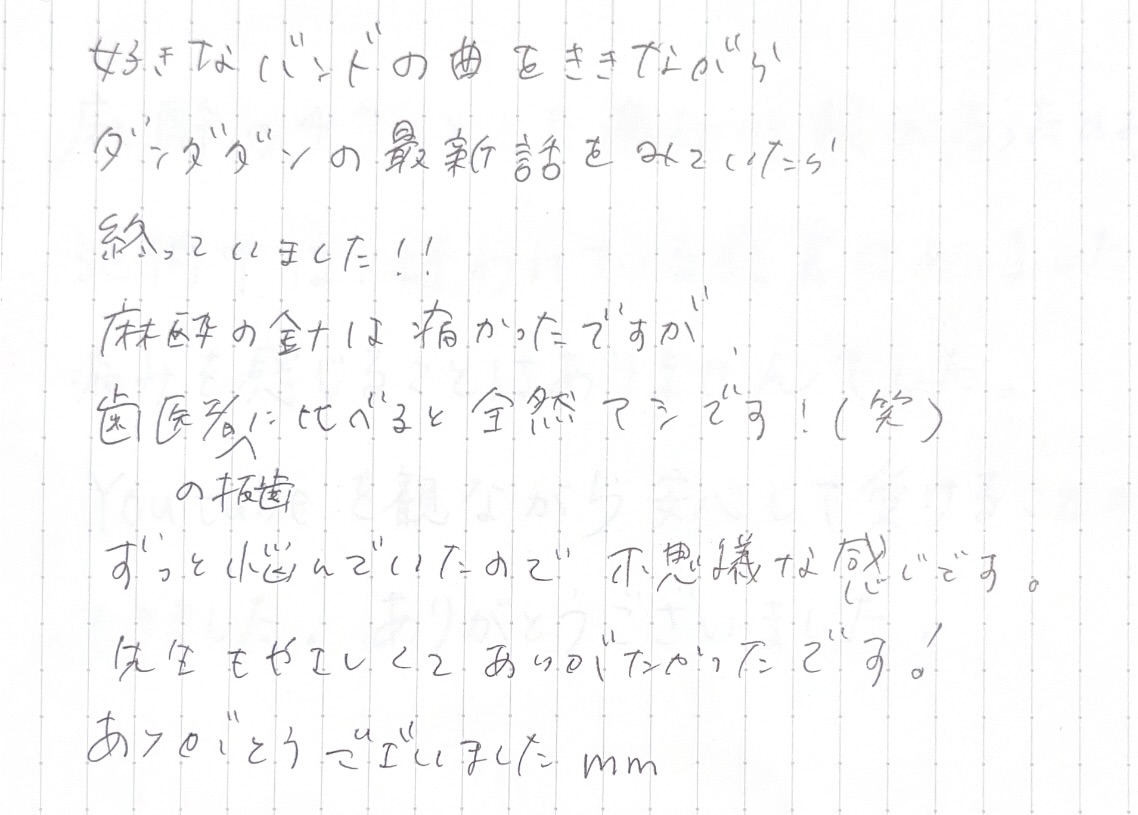 好きなバンドの曲をききながら
ダンダダンの最新話をみていたら
終っていました!!
麻酔の針は痛かったですが、
歯医者に比べると全然マシです!(笑)
の抜歯
ずっと悩んでいたので不思議な感じです。
先生もやさしくてありがたかったです!
ありがとうございましたmm